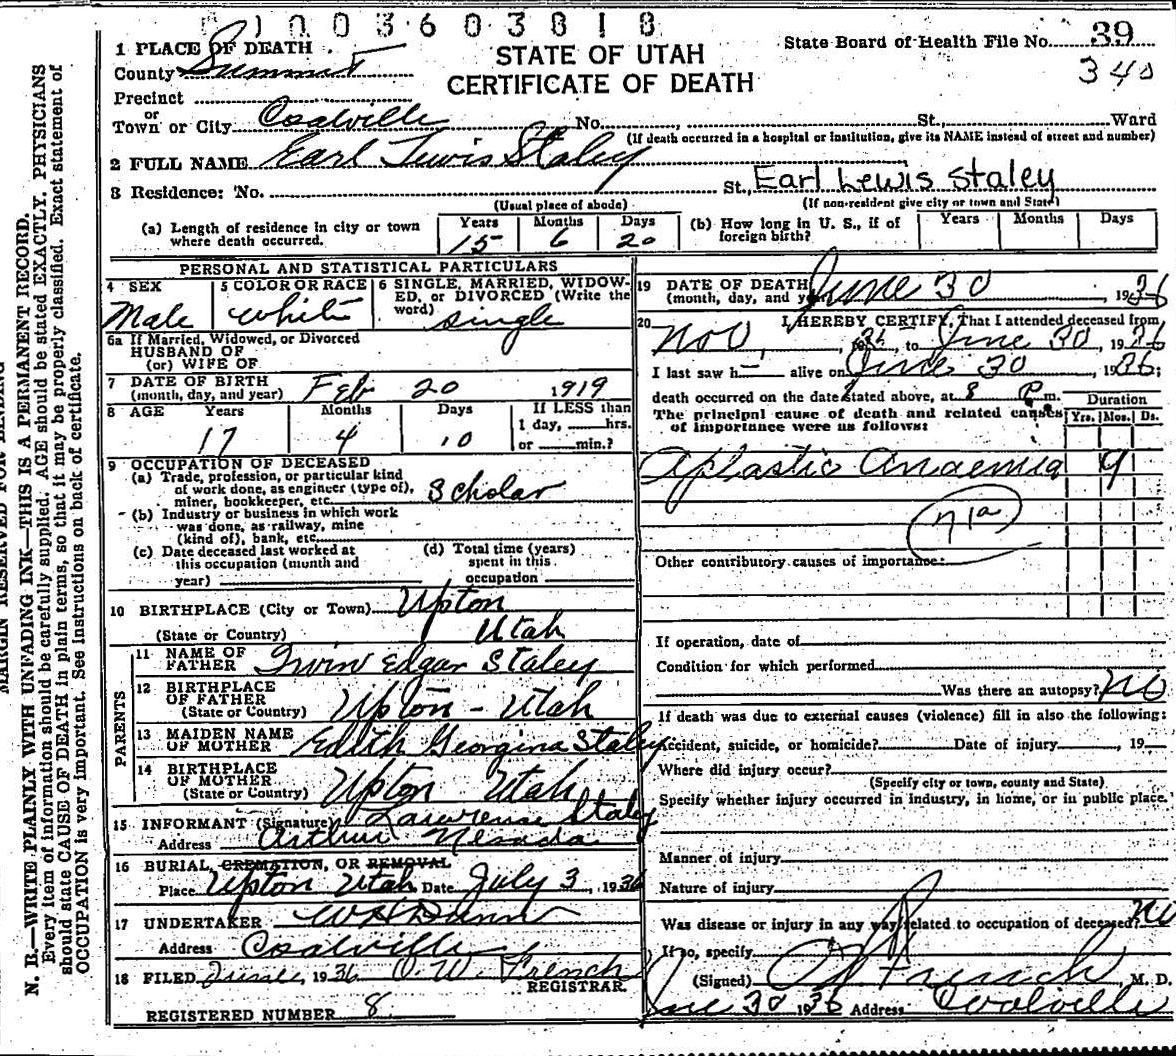 0 1 0 0 3 6 0 3 8 1 8
1 PLACE OF DEATH
County Summit
STATE OF UTAH
CERTIFICATE OF DEATH
State Board of Health File No. 39
340
Precinct
or
Town or City Coalville No. , St., Ward
(If death occurred in a hospital or institution, give its NAME instead of street and number)
2 FULL NAME Earl Lewis Staley
3 Residence: No. St., Earl Lewis Staley
(Usual place of abode) (If non-resident give city or town and State)
(a) Length of residence in city or town where death occurred. Years 15 Months 6 Days 20
(b) How long in U. S., if of foreign birth? Years Months Days
PERSONAL AND STATISTICAL PARTICULARS
4 SEX Male
5 COLOR OR RACE White
6 SINGLE, MARRIED, WIDOWED, or DIVORCED (Write the word) Single
6a If Married, Widowed, or Divorced
HUSBAND OF
(or) WIFE OF
7 DATE OF BIRTH (month, day, and year) Feb 20 1919
8 AGE Years 17 Months 4 Days 10
If LESS than 1 day, hrs. or min.?
9 OCCUPATION OF DECEASED
(a) Trade, profession, or particular kind of work done, as engineer (type of), miner, bookkeeper, etc. Scholar
(b) Industry or business in which work was done, as railway, mine (kind of), bank, etc.
(c) Date deceased last worked at this occupation (month and year)
(d) Total time (years) spent in this occupation
10 BIRTHPLACE (City or Town) Upton
(State or Country) Utah
PARENTS
11 NAME OF FATHER Irvin Edgar Staley
12 BIRTHPLACE OF FATHER (State or Country) Upton - Utah
13 MAIDEN NAME OF MOTHER Edith Georgina Staley
14 BIRTHPLACE OF MOTHER (State or Country) Upton Utah
15 INFORMANT (Signature) Lawrence Staley
Address Arthur Nevada
16 BURIAL, CREMATION, OR REMOVAL
Place Upton Utah Date July 3, 1936
17 UNDERTAKER W H Dunn
Address Coalville
18 FILED June, 1936 O. W. French
REGISTRAR.
REGISTERED NUMBER 8
19 DATE OF DEATH (month, day, and year) June 30 1936
20 I HEREBY CERTIFY, That I attended deceased from
Nov, to June 30, 1936
I last saw h alive on June 30 1936;
death occurred on the date stated above, at 8 P. m.
The principal cause of death and related causes of importance were as follows:
Duration
Yrs. Mos. Ds.
Aplastic Anaemia 9
71a
Other contributory causes of importance:
If operation, date of
Condition for which performed
Was there an autopsy? NO
If death was due to external causes (violence) fill in also the following:
Accident, suicide, or homicide? Date of injury , 19
Where did injury occur?
(Specify city or town, county and State)
Specify whether injury occurred in industry, in home, or in public place.
Manner of injury
Nature of injury
Was disease or injury in any way related to occupation of deceased? No
If so, specify
(Signed) French, M. D.
June 30 1936 Address Coalville
MARGIN RESERVED FOR BINDING
N. B.—WRITE PLAINLY WITH UNFADING INK—THIS IS A PERMANENT RECORD.
Every item of information should be carefully supplied. AGE should be stated EXACTLY. PHYSICIANS
should state CAUSE OF DEATH in plain terms, so that it may be properly classified. Exact statement of
OCCUPATION is very important. See instructions on back of certificate.